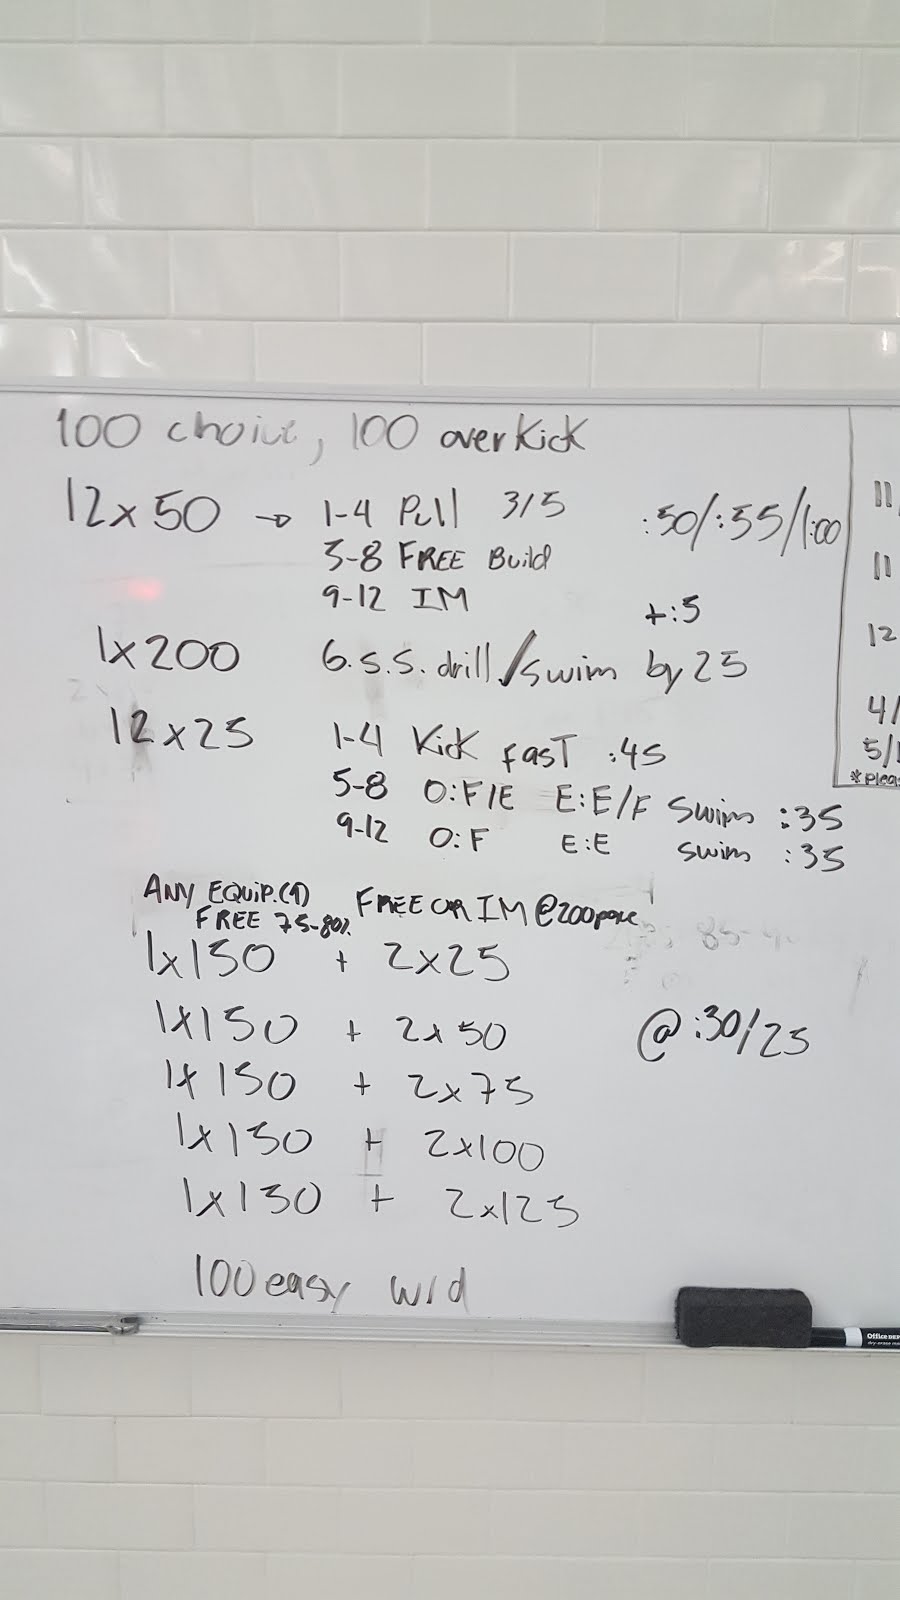 100 choice, 100 over Kick
12x50 → 1-4 Pull 3/5 :50/:55/1:00
5-8 FREE Build
9-12 IM +:5
1x200 6.s.s. drill/swim by 25
12x25 1-4 Kick fast :45
5-8 O:F/E E:E/F Swim :35
9-12 O:F E:E swim :35
ANY EQUIP.(1) FREE OR IM @200pace
FREE 75-80%
1x150 + 2x25
1x150 + 2x50 @:30/25
1x150 + 2x75
1x150 + 2x100
1x150 + 2x125
100 easy w/d
11
11
12
4/
5/
*Pleas
Office DEP
dry-erase